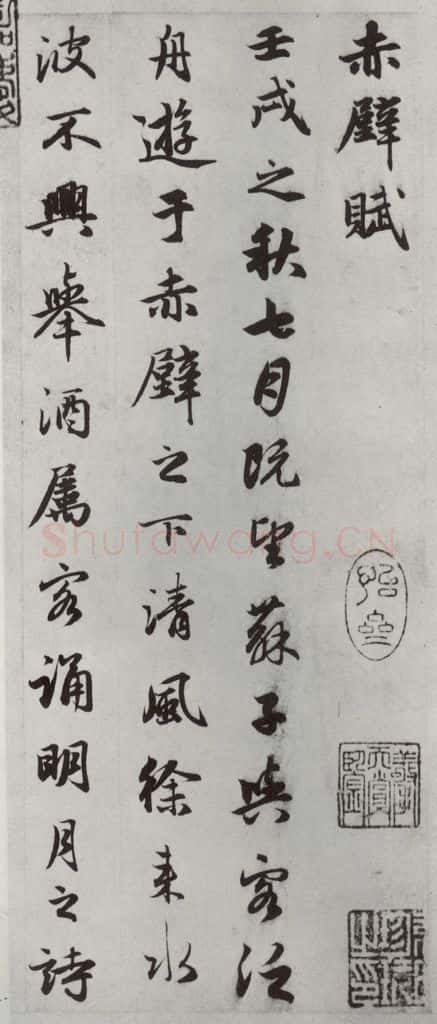 赤壁賦
壬戌之秋七月既望蘇子與客泛
舟遊于赤壁之下清風徐来水
波不興舉酒属客誦明月之詩
Shufawang.CN